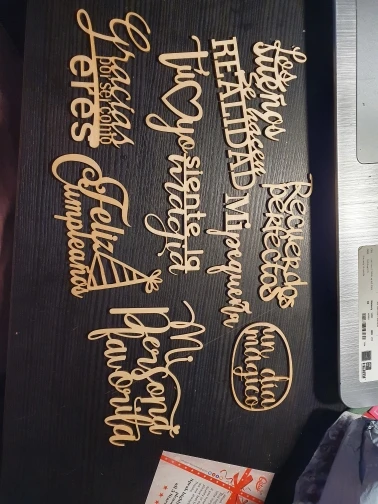 Los
sueños
se hacen
REALIDAD
Tú yo
siente
la magia
Gracias
por ser como
eres
Recuerdos
perfectos
Mi pequeña
¡Feliz
Cumpleaños
un día
mágico
Mi
Persona
favorita